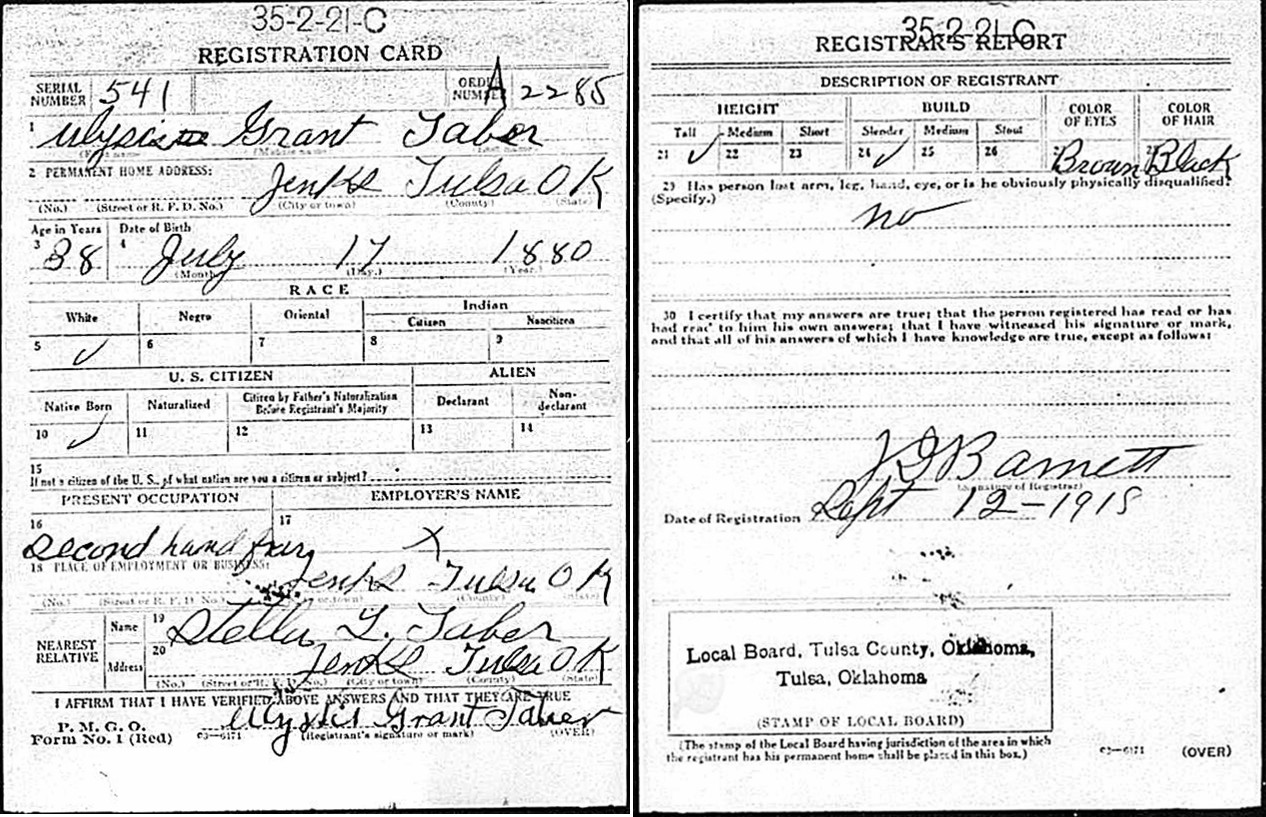 35-2-21-C
REGISTRATION CARD
SERIAL NUMBER 541 ORDER NUMBER A 2285
1 Grant Taber
2 PERMANENT HOME ADDRESS: Jenks Tulsa OK
(No.) (Street or R. F. D. No.) (City or town) (County) (State)
Age in Years Date of Birth
3 38 4 July 17 1880
(Month) (Day.) (Year.)
RACE
White Negro Oriental Indian
Citizen Noncitizen
5 ✓ 6 7 8 9
U. S. CITIZEN ALIEN
Native Born Naturalized Citizen by Father's Naturalization Before Registrant's Majority Declarant Non-declarant
10 ✓ 11 12 13 14
15
If not a citizen of the U. S., of what nation are you a citizen or subject?
PRESENT OCCUPATION EMPLOYER'S NAME
16 second hand 17 X
18 PLACE OF EMPLOYMENT OR BUSINESS: Jenks Tulsa OK
(No.) (Street or R. F. D. No.) (City or town) (County) (State)
NEAREST RELATIVE Name 19 Stella L. Taber
Address 20 Jenks Tulsa OK
(No.) (Street or R. F. D. No.) (City or town) (County) (State)
I AFFIRM THAT I HAVE VERIFIED ABOVE ANSWERS AND THAT THEY ARE TRUE
P. M. G. O.
Form No. 1 (Red) 03—6171 Grant Taber
(Registrant's signature or mark) (OVER)
35-2-21 C
REGISTRAR'S REPORT
DESCRIPTION OF REGISTRANT
HEIGHT BUILD COLOR OF EYES COLOR OF HAIR
Tall Medium Short Slender Medium Stout
21 ✓ 22 23 24 ✓ 25 26 Brown Black
29 Has person lost arm, leg, hand, eye, or is he obviously physically disqualified?
(Specify.) no
30 I certify that my answers are true; that the person registered has read or has
had read to him his own answers; that I have witnessed his signature or mark,
and that all of his answers of which I have knowledge are true, except as follows:
J D Barnett
(Signature of Registrar)
Date of Registration Sept 12-1918
Local Board, Tulsa County, Oklahoma,
Tulsa, Oklahoma
(STAMP OF LOCAL BOARD)
(The stamp of the Local Board having jurisdiction of the area in which
the registrant has his permanent home shall be placed in this box.)
03—6171 (OVER)